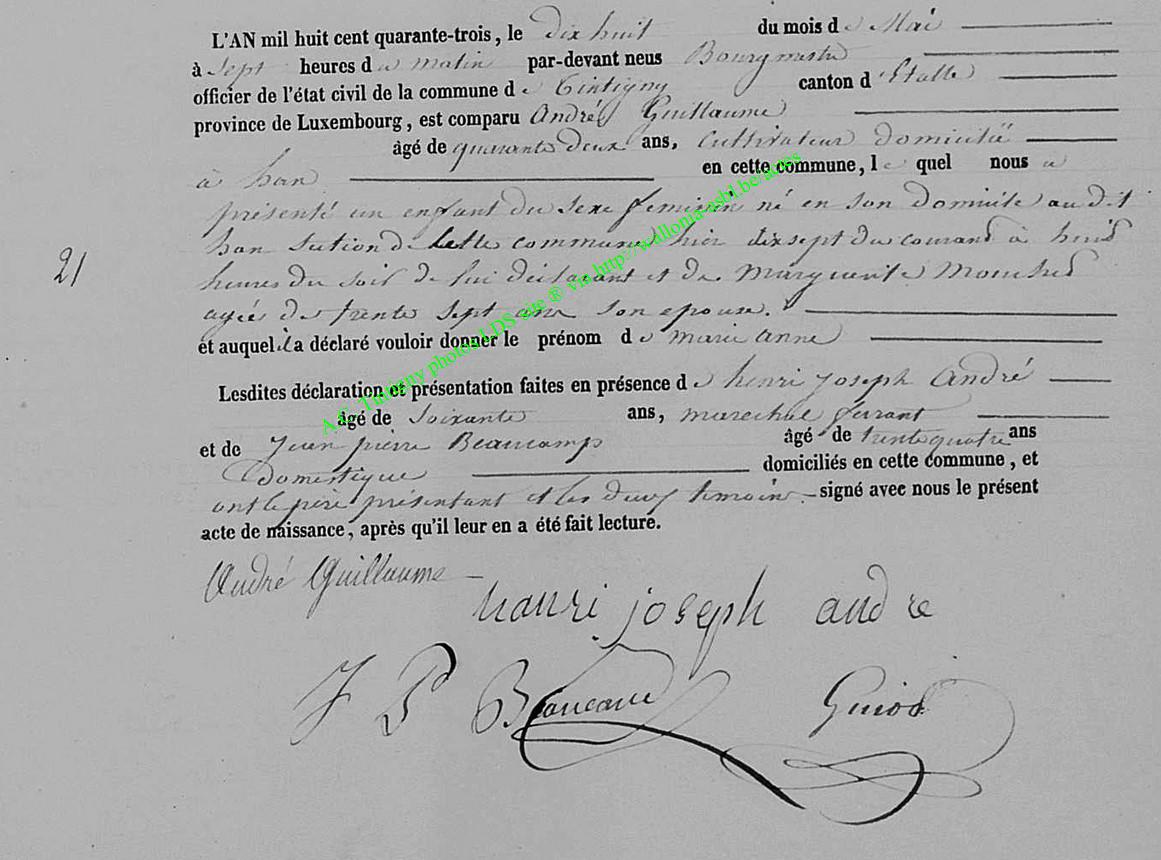 L'AN mil huit cent quarante-trois, le dix huit du mois de Mai
à Sept heures du matin par-devant nous Bourgmestre
officier de l'état civil de la commune de Tintigny canton d'Etalle
province de Luxembourg, est comparu André Guillaume
âgé de quarante deux ans, Cultivateur domicilié
à han en cette commune, le quel nous a
présenté un enfant du sexe feminin né en son domicile au dit
han section de cette commune hier dix sept du courant à huit
heures du soir de lui déclarant et de Marguerite
agée de trente sept ans son epouse.
21
et auquel il a déclaré vouloir donner le prénom de marie anne
Lesdites déclaration et présentation faites en présence de henri joseph André
âgé de Soixante ans, marechal ferrant
et de Jean pierre Beaucamp âgé de trente quatre ans
Domestique domiciliés en cette commune, et
ont le père présentant et les deux temoins signé avec nous le présent
acte de naissance, après qu'il leur en a été fait lecture.
André Guillaume
hanri joseph andre
J P
A.C. Tintigny photos LDS site ® via http://wallonia-asbl.be/actes